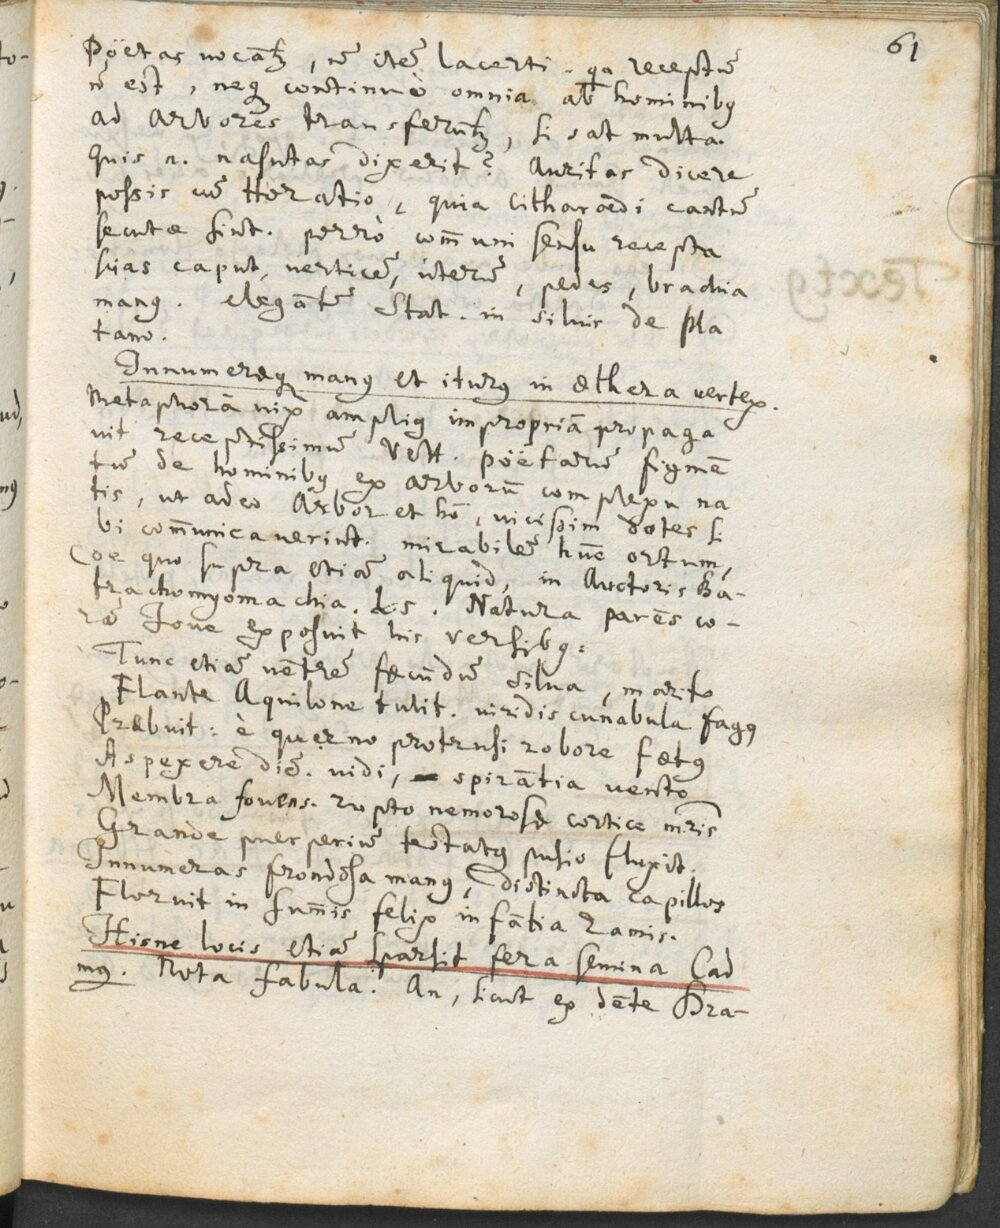 61
Poëtas vocãtz, nō itē lacerti. qa receptū
nō est, neq continuò omnia ab hominibꝰ
ad arbores transferūtz, si sat multa.
Quis n. nasutas dixerit? Auritas dicere
possis cū Horatio, quia Citharoedi cantū
secutæ sint. porrò com̄uni sensu recepta
scias caput, verticē, uterū, pedes, brachia
manꝰ. elegãtē Stat. in silvis de Pla
tano.
Innumeræq manꝰ et iturꝰ in æthera vertex.
Metaphorã vix ampliꝰ impropriã propaga
vit receptissimū Vett. Poëtarū figmē
tū de hominibꝰ ex arborū complexu na
tis, ut adeo Arbor et hō, vicissim dotes si
bi com̄unicaverint. mirabilē hūc ortum,
(de quo supra etiã aliquid, in Auctoris Ba-
trachomyomachia. Natura parēs co-
rã Jove exposuit his versibꝰ:
Tunc etiã vētrē fœcūdū silva, marito
Flante Aquilone tulit. viridis cunabula fagꝰ
Præbuit: è querno protrusi robore fœtꝰ
Aspexerē diē. vidi, spirãtia vento
Membra fovens. rupto nemorosæ cortice mr̄is
Grande puerperiū testatꝰ pusio fluxit.
Innumeras frondosa manꝰ, distincta capillos
Floruit in sum̄is felix infãtia ramis.
Hisne locis etiã sparsit fera semina Cad
mꝰ. Nota fabula. An, sicut ex dēte Dra-